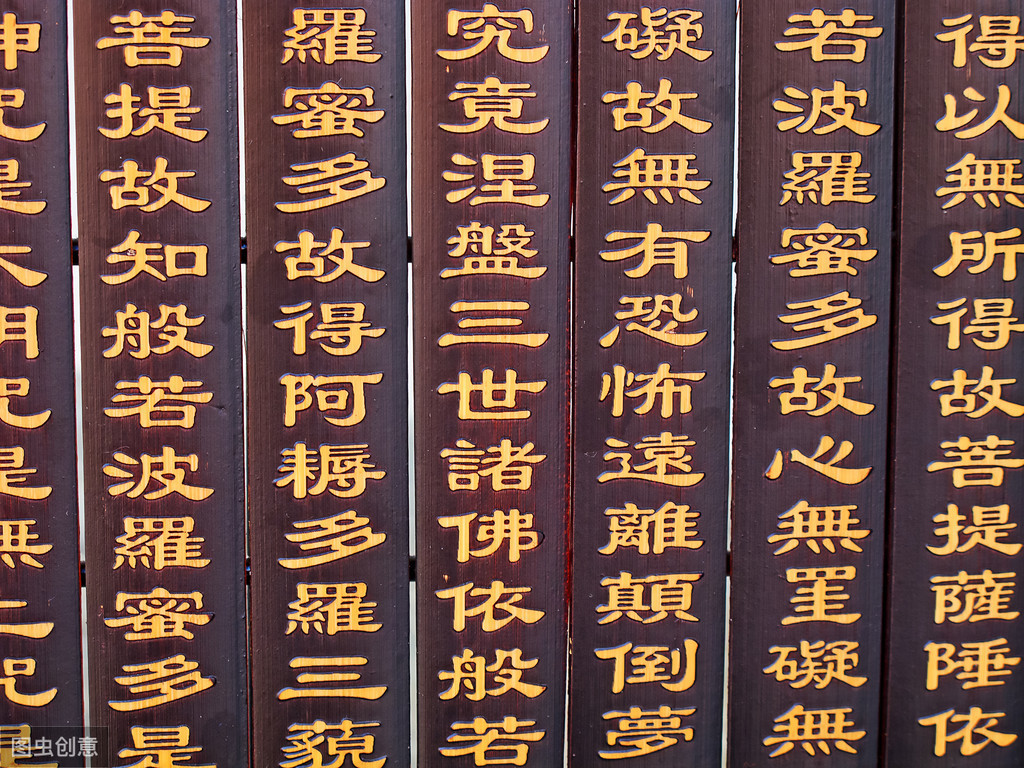 得以無所得故菩提薩陲依
若波羅蜜多故心無罣礙無
礙故無有恐怖遠離顛倒夢
究竟涅盤三世諸佛依般若
羅蜜多故得阿耨多羅三藐
菩提故知般若波羅蜜多是
神咒是大明咒是無上咒是
图虫创意